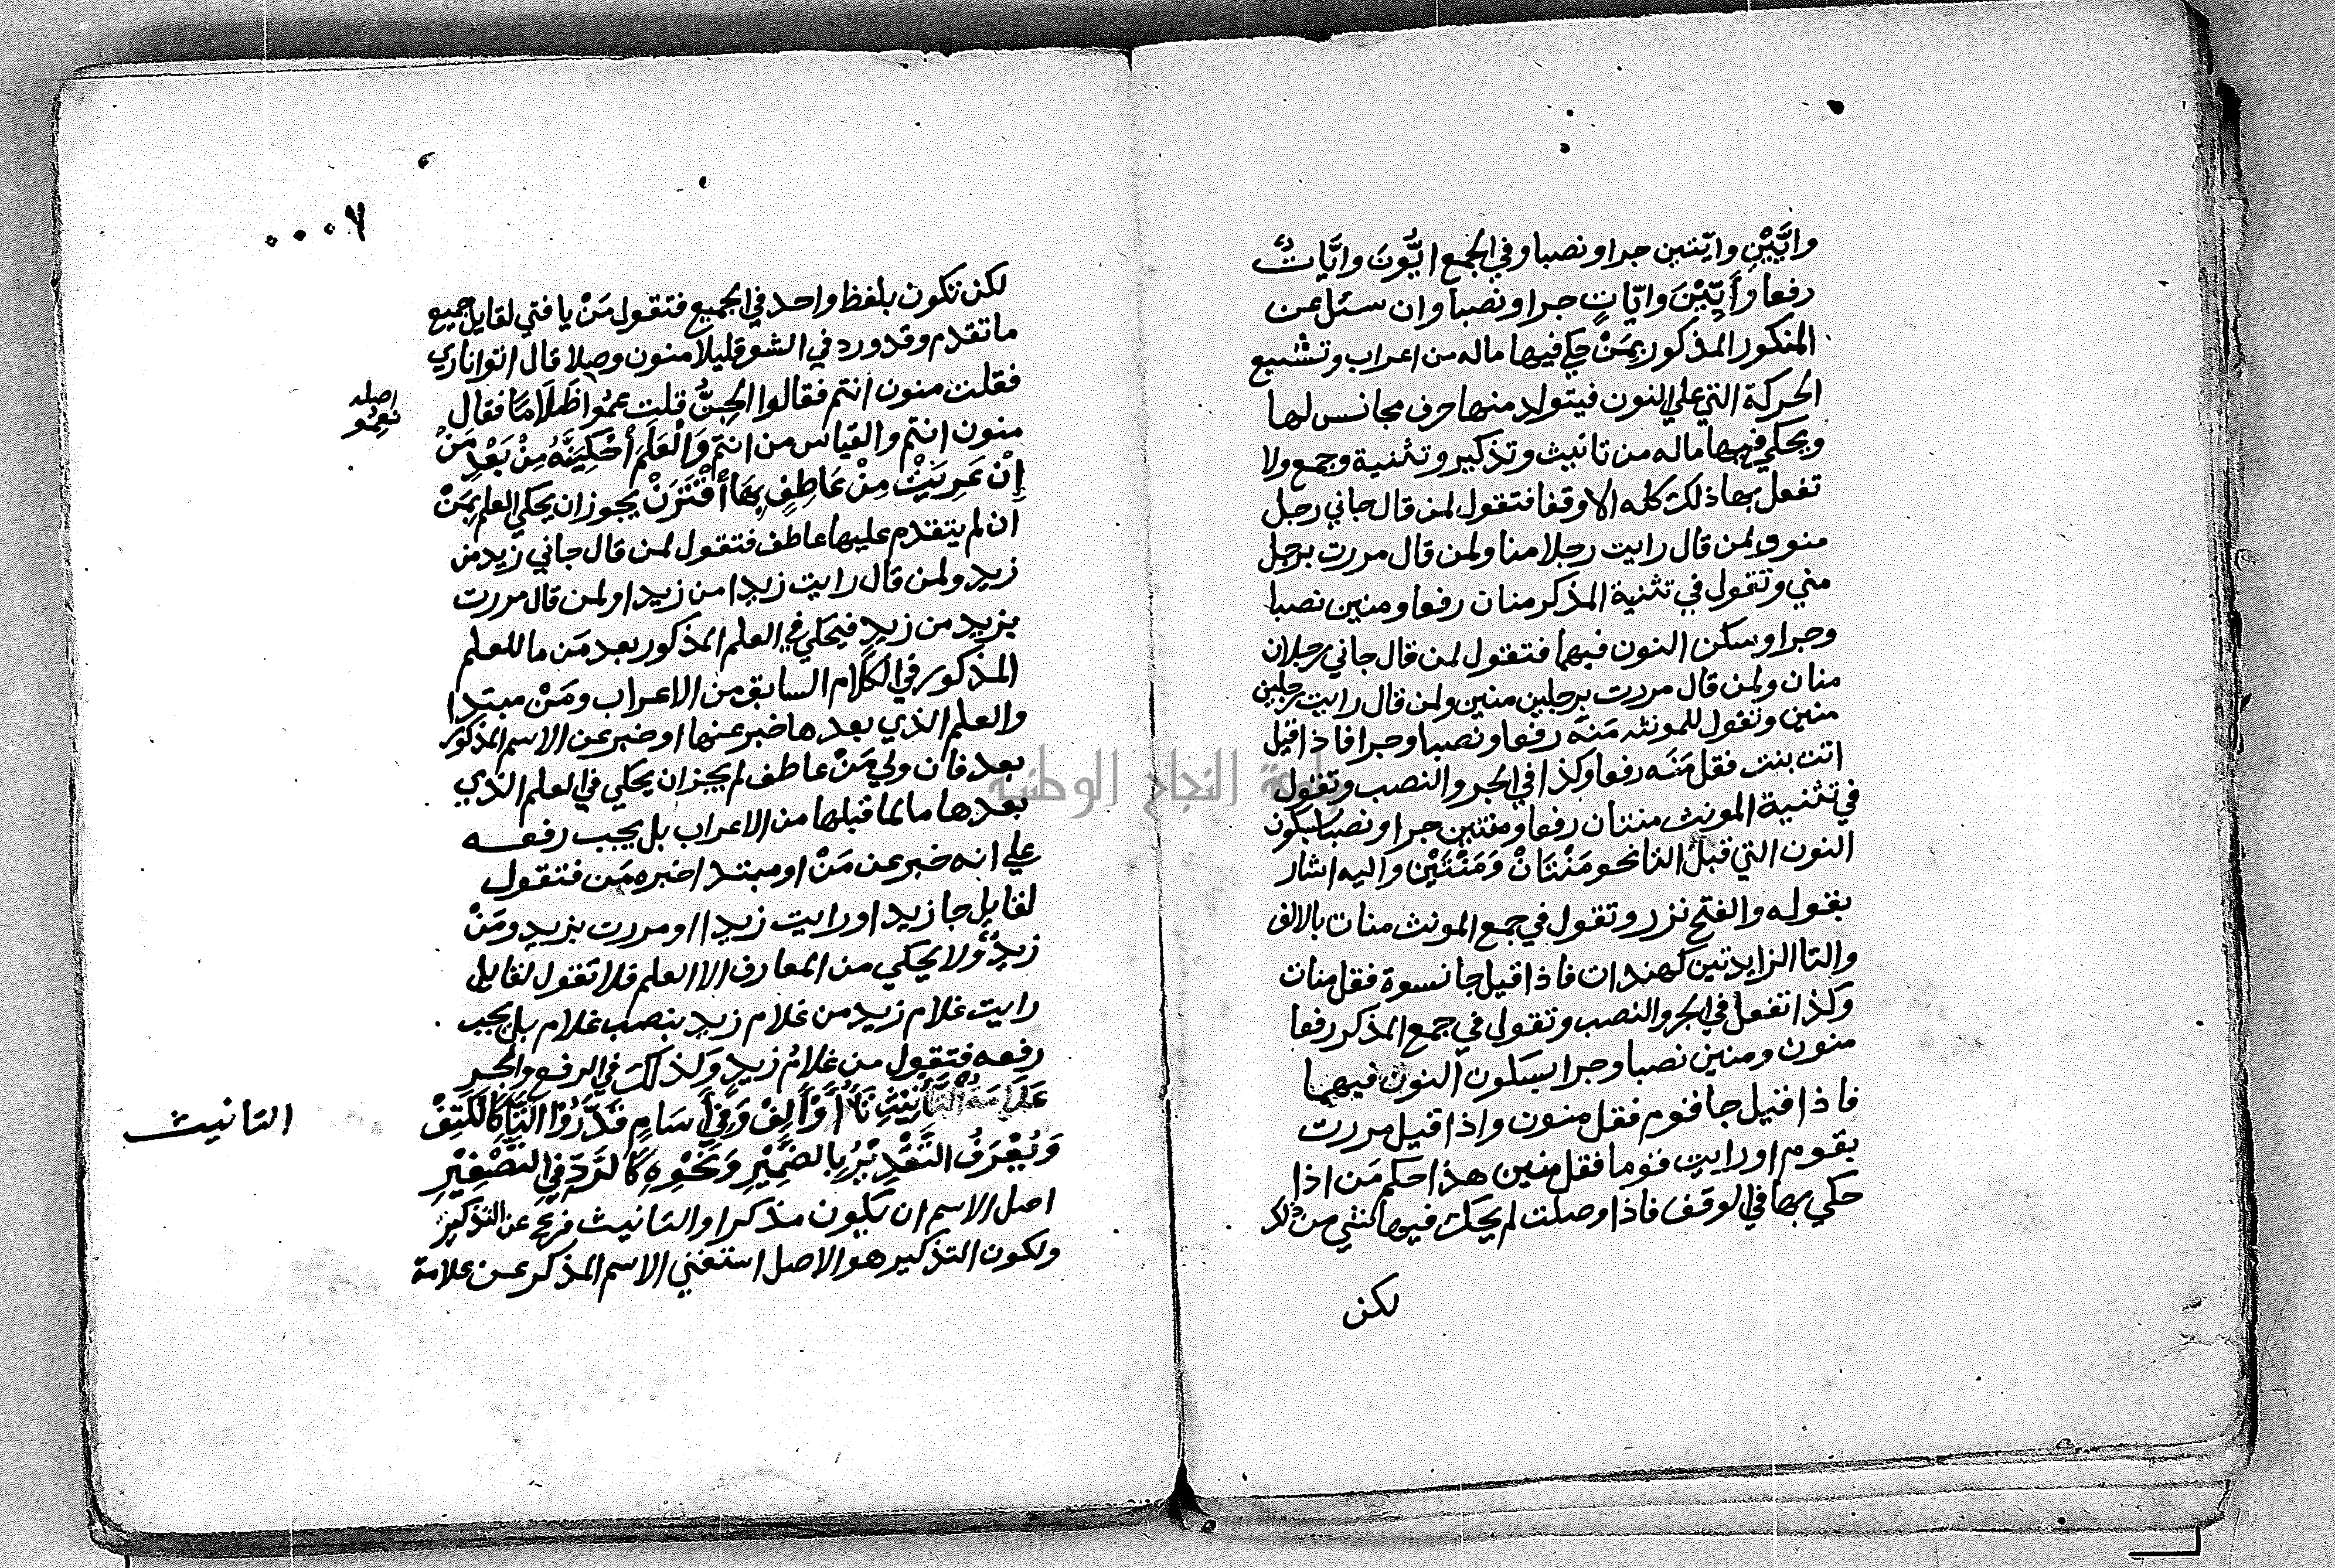 وايَّيْنِ وايتين جرا ونصبا وفي الجمع ايُّونَ وايَّاتٌ
رفعا وأَيِّيْنَ وايّاتٍ جرا ونصبا وان سئل عن
المنكور المذكور بِمَنْ حكي فيها ماله من اعراب وتشبع
الحركة التي علي النون فيتولد منها حرف مجانس لها
ويحكي فيها ماله من تانيث وتذكير وتثنية وجمع ولا
تفعل بها ذلك كله الا وقفا فتقول لمن قال جاني رجل
منو ولمن قال رايت رجلا منا ولمن قال مررت برجل
مني وتقول في تثنية المذكر منان رفعا ومنين نصبا
وجرا وبسكن النون فيهما فتقول لمن قال جاني رجلان
منان ولمن قال مررت برجلين منين ولمن قال رايت رجلين
منين وتقول للمونثه مَنَه رفعا ونصبا وجرا فاذا قيل
اتت بنت فقل مَنَه رفعا وكذا في الجر والنصب وتقول
في تثنية المونث منتان رفعا ومنتين جرا ونصبا بسكون
النون التي قبل التا نحو مَنْتَانْ وَمَنْتَيْنْ واليه اشار
بقوله والفتح نزر وتقول في جمع المونث منات بالالف
والتا الزايدتين كهندات فاذا قيل جا نسوة فقل منات
وكذا تفعل في الجر والنصب وتقول في جمع المذكر رفعا
منون ومنين نصبا وجرا بسكون النون فيهما
فاذا قيل جا قوم فقل منون واذا قيل مررت
بقوم او رايت قوما فقل منين هذا حكم مَن اذا
حكي بها في الوقف فاذا وصلت لم يحك فيها شي من ذلك
لكن
٠٠٠٦
لكن تكون بلفظ واحد في الجميع فتقول مَنْ يا فتي لقايل جميع
ما تقدم وقد ورد في الشعر قليلا منون وصلا قال اتوا ناري
فقلت منون انتم فقالوا الجِنُّ قلت عِمُوا ظَلَامًا فقال
اصله
نعِمُو
منون انتم والقياس من انتم وَالْعَلَمَ أحْكِيَنَّهُ مِنْ بَعْدِ مَنْ
إِنْ عَرِيَتْ مِنْ عَاطِفٍ بِهَا أقْتَرَنْ يجوز ان يحكي العلم بِمَنْ
ان لم يتقدم عليها عاطف فتقول لمن قال جاني زيد من
زيد ولمن قال رايت زيدا من زيدا ولمن قال مررت
بزيد من زيدٍ فيحكي في العلم المذكور بعد مَن ما للعلم
المذكور في الكلام السابق من الاعراب ومَنْ مبتدا
والعلم الذي بعدها خبر عنها او خبر عن الاسم المذكور
بعد فان ولي مَنْ عاطف لم يجز ان يحكي في العلم الذي
بعدها ما لما قبلها من الاعراب بل يجب رفعه
علي انه خبر عن مَنْ او مبتدا خبره مَن فتقول
لقايل جا زيد او رايت زيدا او مررت بزيد ومَنْ
زيدٌ ولا يحكي من المعارف الا العلم فلا تقول لقايل
رايت غلام زيد من غلام زيد بنصب غلام بل يجب
رفعه فتقول من غلامُ زيدٍ وكذلك في الرفع والجر
التانيث
عَلَامَةُ التَّأنِيْثِ تَاٌ أوْ أَلِفْ وَفِي أَسَامٍ قَدَّرُوْا التَّا كَالْكَتِفْ
وَيُعْرَفُ التَّقْدِيْرُ بِالضَّمِيْرِ وَنَحْوِهِ كَالرَّدِّ فِي التَّصْغِيْرِ
اصل الاسم ان يكون مذكرا والتانيث فرع عن التذكير
ولكون التذكير هو الاصل استغني الاسم المذكر عن علامة
جامعة النجاح الوطنية